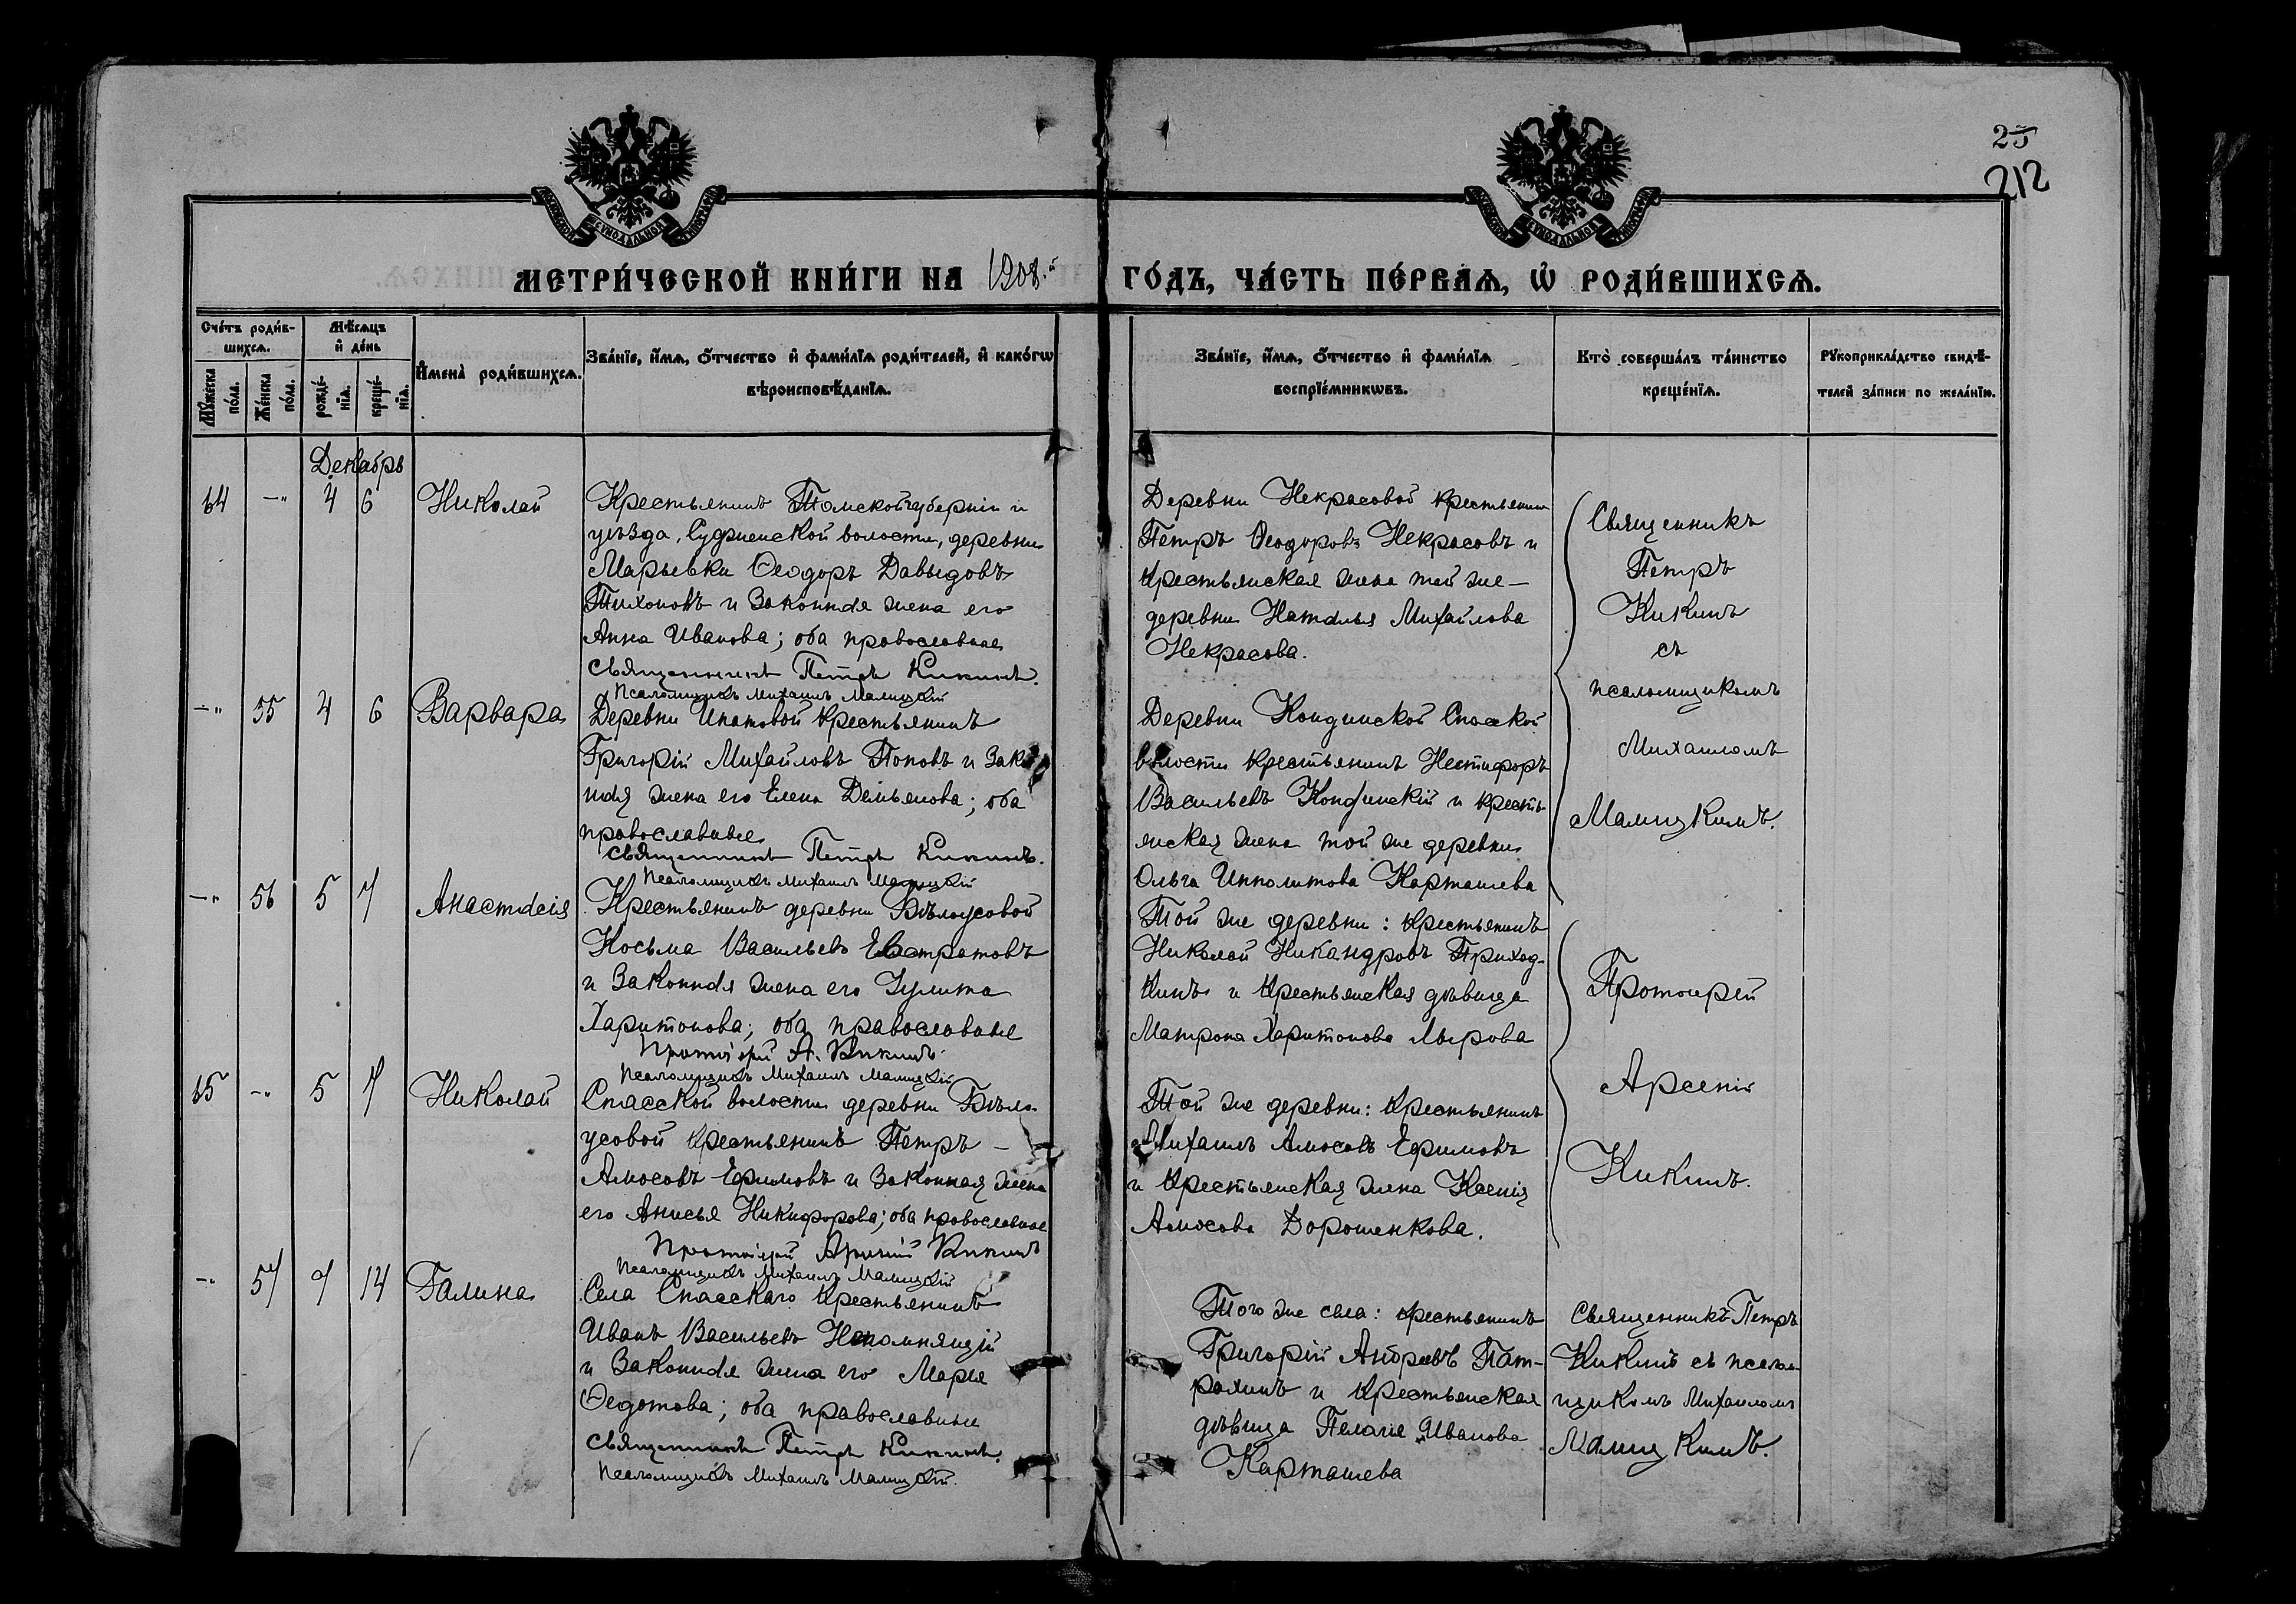 25
212
МОСКОВСКОЙ СѴНОДАЛЬНОЙ ТИПОГРАФІИ
МОСКОВСКОЙ СѴНОДАЛЬНОЙ ТИПОГРАФІИ
МЕТРИ́ЧЕСКОЙ КНИ́ГИ НА 1908.й ГО́ДЪ, ЧА́СТЬ ПЕ́РВАѦ, Ѽ РОДИ́ВШИХСѦ.
Сче́тъ роди́в-
шихсѧ.
Мѣ́сѧцъ
и҆ де́нь
Мꙋ́жеска
по́ла.
Же́нска
по́ла.
рожде́-
нїѧ.
креще́-
нїѧ.
И҆мена̀ роди́вшихсѧ.
Зва́нїе, и҆́мѧ, ѻ҆́тчество и҆ фами́лїѧ роди́телей, и҆ како́гѡ
вѣроисповѣ́данїѧ.
Зва́нїе, и҆́мѧ, ѻ҆́тчество и҆ фами́лїѧ
воспрїе́мникѡвъ.
Кто̀ соверша́лъ та́инство
креще́нїѧ.
Рꙋкоприкла́дство свидѣ́-
телей за́писи по жела́нїю.
Декабрь
64 —" 4 6 Николай
Крестьянинъ Томской губерніи и
уѣзда, Судженской волости, деревни
Марьевки Ѳеодоръ Давыдовъ
Тихоновъ и законная жена его
Анна Иванова; оба православные
Священникъ Петръ Кикинъ.
Псаломщикъ Михаилъ Малицкій
Деревни Некрасовой крестьянин
Петръ Ѳеодоровъ Некрасовъ и
крестьянская жена той же —
деревни Наталья Михайлова
Некрасова.
Священникъ
Петръ
Кикинъ
съ
псаломщикомъ
Михаиломъ
Малицкимъ.
—" 55 4 6 Варвара
Деревни Ипатовой крестьянинъ
Григорій Михайловъ Поповъ и зако
ная жена его Елена Демьянова; оба
православные
Священникъ Петръ Кикинъ.
Псаломщикъ Михаилъ Малицкій
Деревни Кондинской Спасской
волости крестьянинъ Нестифоръ
Васильевъ Кондинскій и кресть
янская жена той же деревни
Ольга Ипполитова Карташева
—" 56 5 7 Анастасія
Крестьянинъ деревни Бѣлоусовой
Косьма Васильевъ Евстратовъ
и законная жена его Іулита
Харитонова; оба православные
Протоіерей А. Кикинъ
Псаломщикъ Михаилъ Малицкій
Той же деревни: крестьянинъ
Николай Никандровъ Приход-
кинъ и крестьянская дѣвица
Матрона Харитонова Лырова
Протоіерей
Арсеній
Кикинъ.
65 —" 5 7 Николай
Спасской волости деревни Бѣло-
усовой крестьянинъ Петръ —
Амосовъ Ефимовъ и законная жена
его Анисья Никифорова; оба православные
Протоіерей Арсеній Кикинъ
Псаломщикъ Михаилъ Малицкій
Той же деревни: крестьянинъ
Михаилъ Амосовъ Ефимовъ
и крестьянская жена Ксенія
Амосова Дорошенкова.
—" 57 9 14 Галина
Села Спасскаго крестьянинъ
Иванъ Васильевъ Непомнящій
и законная жена его Марія
Ѳедотова; оба православные
Священникъ Петръ Кикинъ.
Псаломщикъ Михаилъ Малицкій.
Того же села: крестьянинъ
Григорій Андреевъ Пат-
рахинъ и крестьянская
дѣвица Пелагія Иванова
Карташева
Священникъ Петръ
Кикинъ съ псалом-
щикомъ Михаиломъ
Малицкимъ.